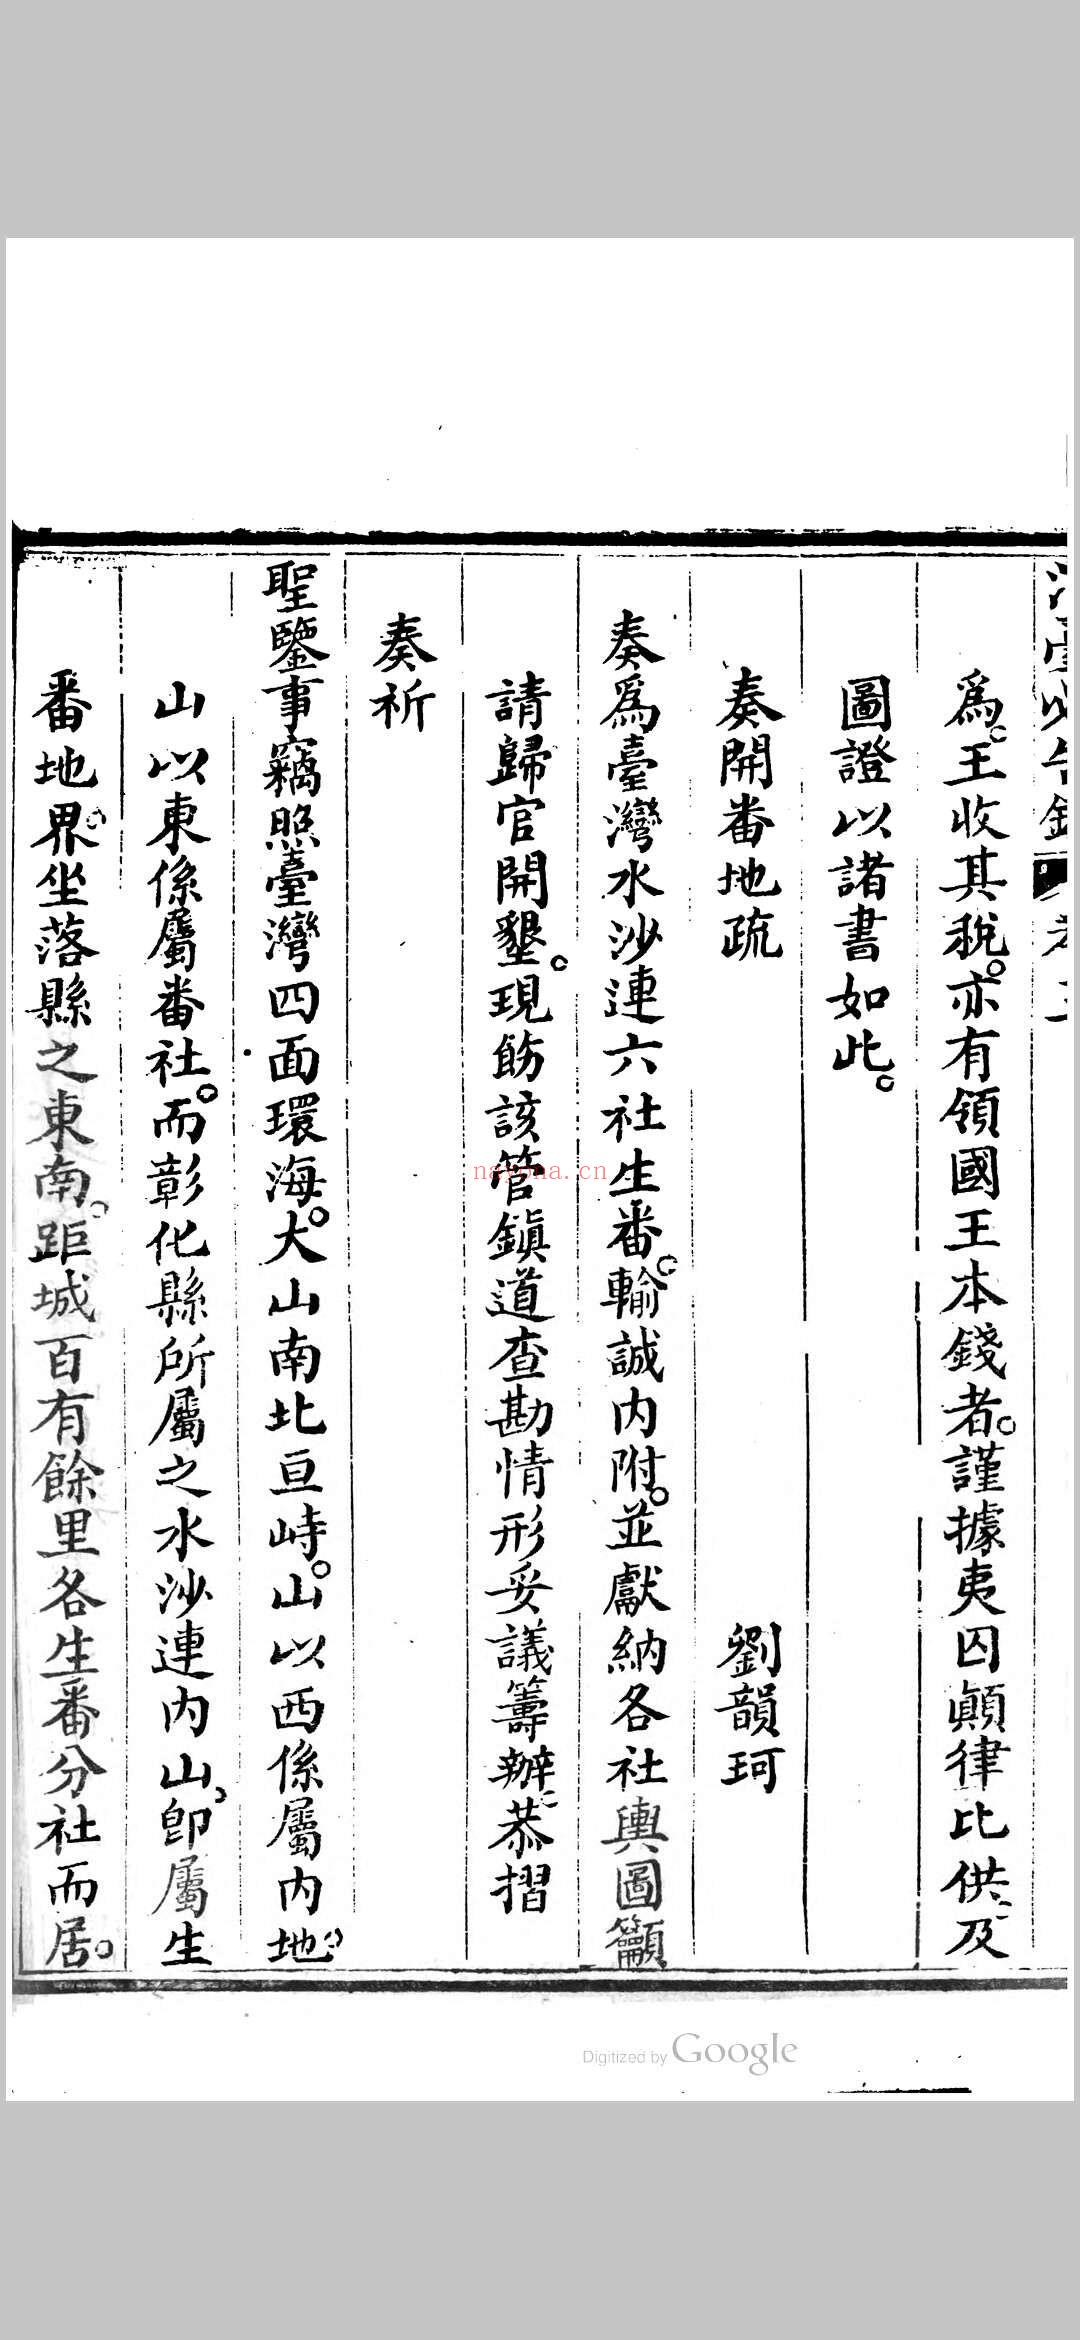 為王收其稅亦有領國王本錢者謹據夷囚顛律比供及
圖證以諸書如此
奏開番地疏 劉韻珂
奏爲臺灣水沙連六社生番輸誠內附並獻納各社輿圖籲
請歸官開墾現飭該管鎮道查勘情形妥議籌辦恭摺
奏祈
聖鑒事竊照臺灣四面環海大山南北亘峙山以西係屬內地
山以東係屬番社而彰化縣所屬之水沙連內山卽屬生
番地界坐落縣之東南距城百有餘里各生番分社而居
nayona.cn
Digitized by Google